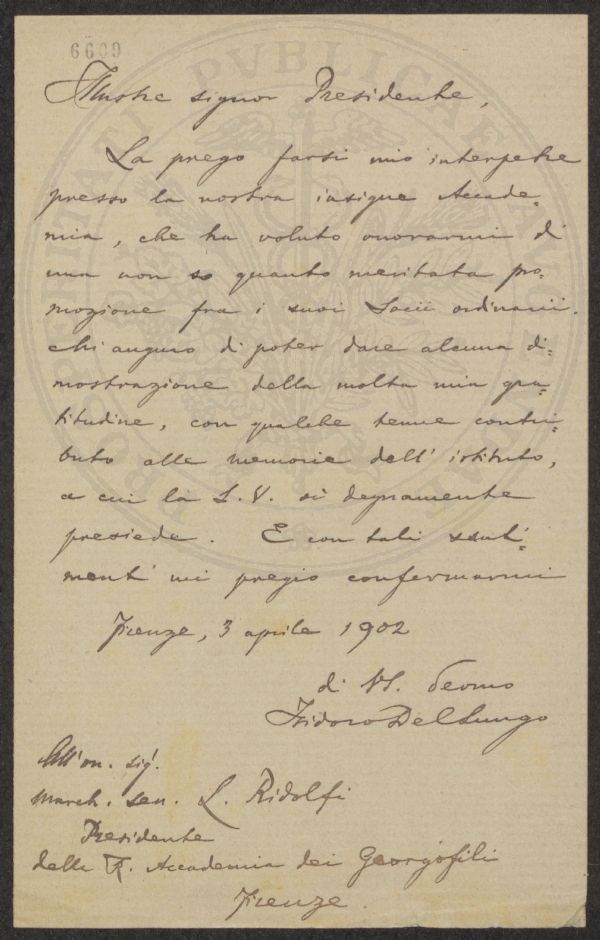 6609
Illustre signor Presidente,
La prego farsi mio interpetre
presso la nostra insigne Accade-
mia, che ha voluto onorarmi di
una non so quanto meritata pro-
mozione fra i suoi Socii ordinarii.
Mi auguro di poter dare alcuna di-
mostrazione della molta mia gra-
titudine, con qualche tenue contri-
buto alle memorie dell' istituto,
a cui la S. V. sì degnamente
presiede. E con tali senti-
menti mi pregio confermarmi
Firenze, 3 aprile 1902
di VS. devmo
Isidoro Del Lungo
All' on. sigr.
March. sen. L. Ridolfi
Presidente
della R. Accademia dei Georgofili
Firenze.
PROSPERITATI PVBLICAE AVGENDAE